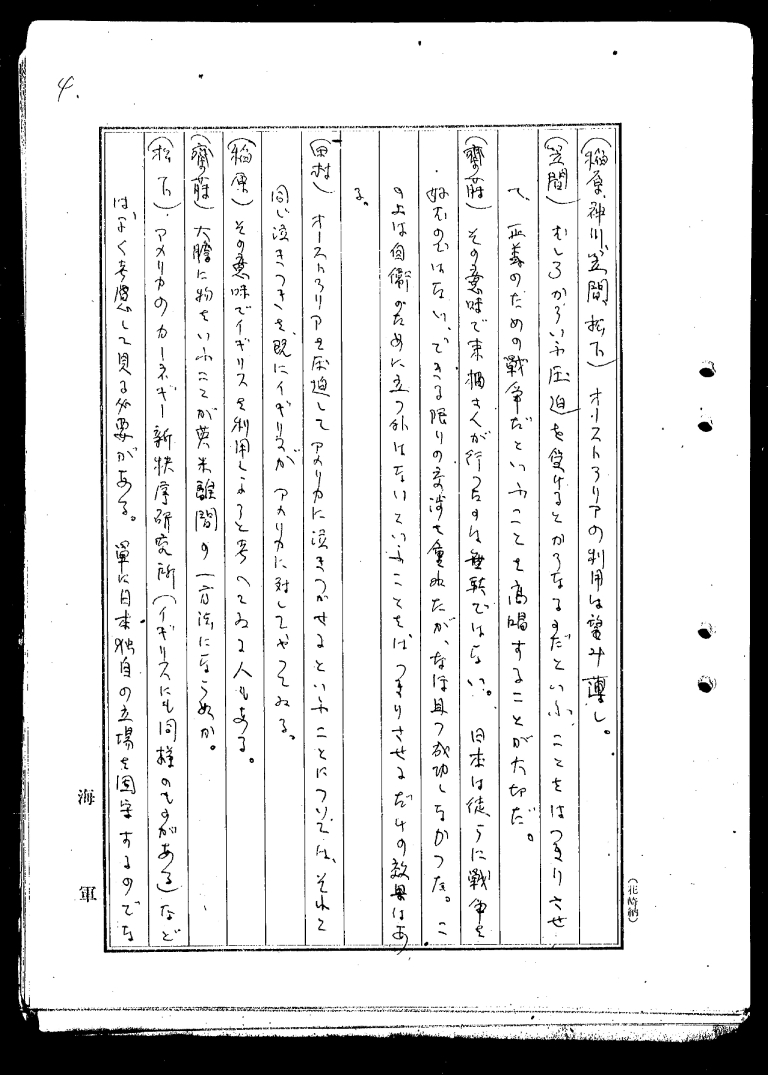 4.
(稲原、神川、笠間、松下) オーストラリアの利用は望み薄し。
(笠間) むしろかういふ圧迫を受けるとかうなるのだといふことをはつきりさせ
て、正義のための戦争だといふことを高唱することが大切だ。
(齋藤) その意味で来栖さんが行つたのは無駄ではない。 日本は徒らに戦争を
好むのではない、できる限りの交渉を重ねたが、なほ且つ成功しなかつた。こ
の上は自衛のために立つ外はないといふことをはつきりさせるだけの効果はあ
る。
(田村) オーストラリアを圧迫してアメリカに泣きつかせるといふことについては、それと
同じ泣きつきを、既にイギリスが アメリカに対してやつてゐる。
(稲原) その意味でイギリスを利用しようと考へてゐる人もある。
(齋藤) 大膽に物をいふことが英米離間の一方法にならぬか。
(松下) アメリカのカーネギー新秩序研究所(イギリスにも同様のものがある)など
はよく考慮して見る必要がある。 單に日本独自の立場を固守するのでな
海軍